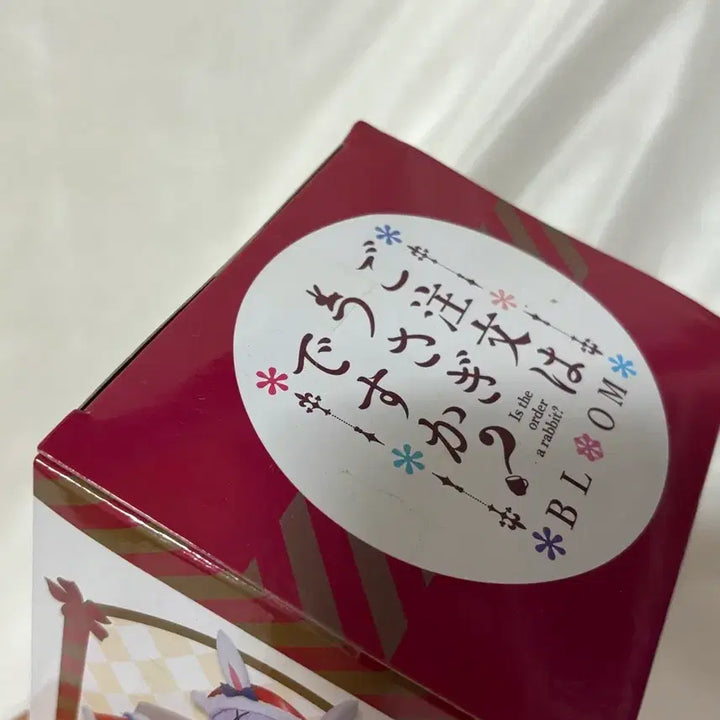 ご注文は
うさぎ
ですか?
Is the
order
a rabbit?
BLOOM